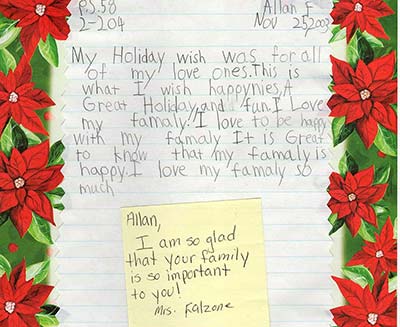 P.S.58 Allan F
2-204 Nov 25,2003
My Holiday wish was for all
of my love ones.This is
what I wish happynies,A
Great Holiday,and fun.I Love
my famaly!I love to be happy
with my famaly It is Great
to know that my famaly is
happy.I love my famaly so
much
Allan,
I am so glad
that your family
is so important
to you!
Mrs. Falzone